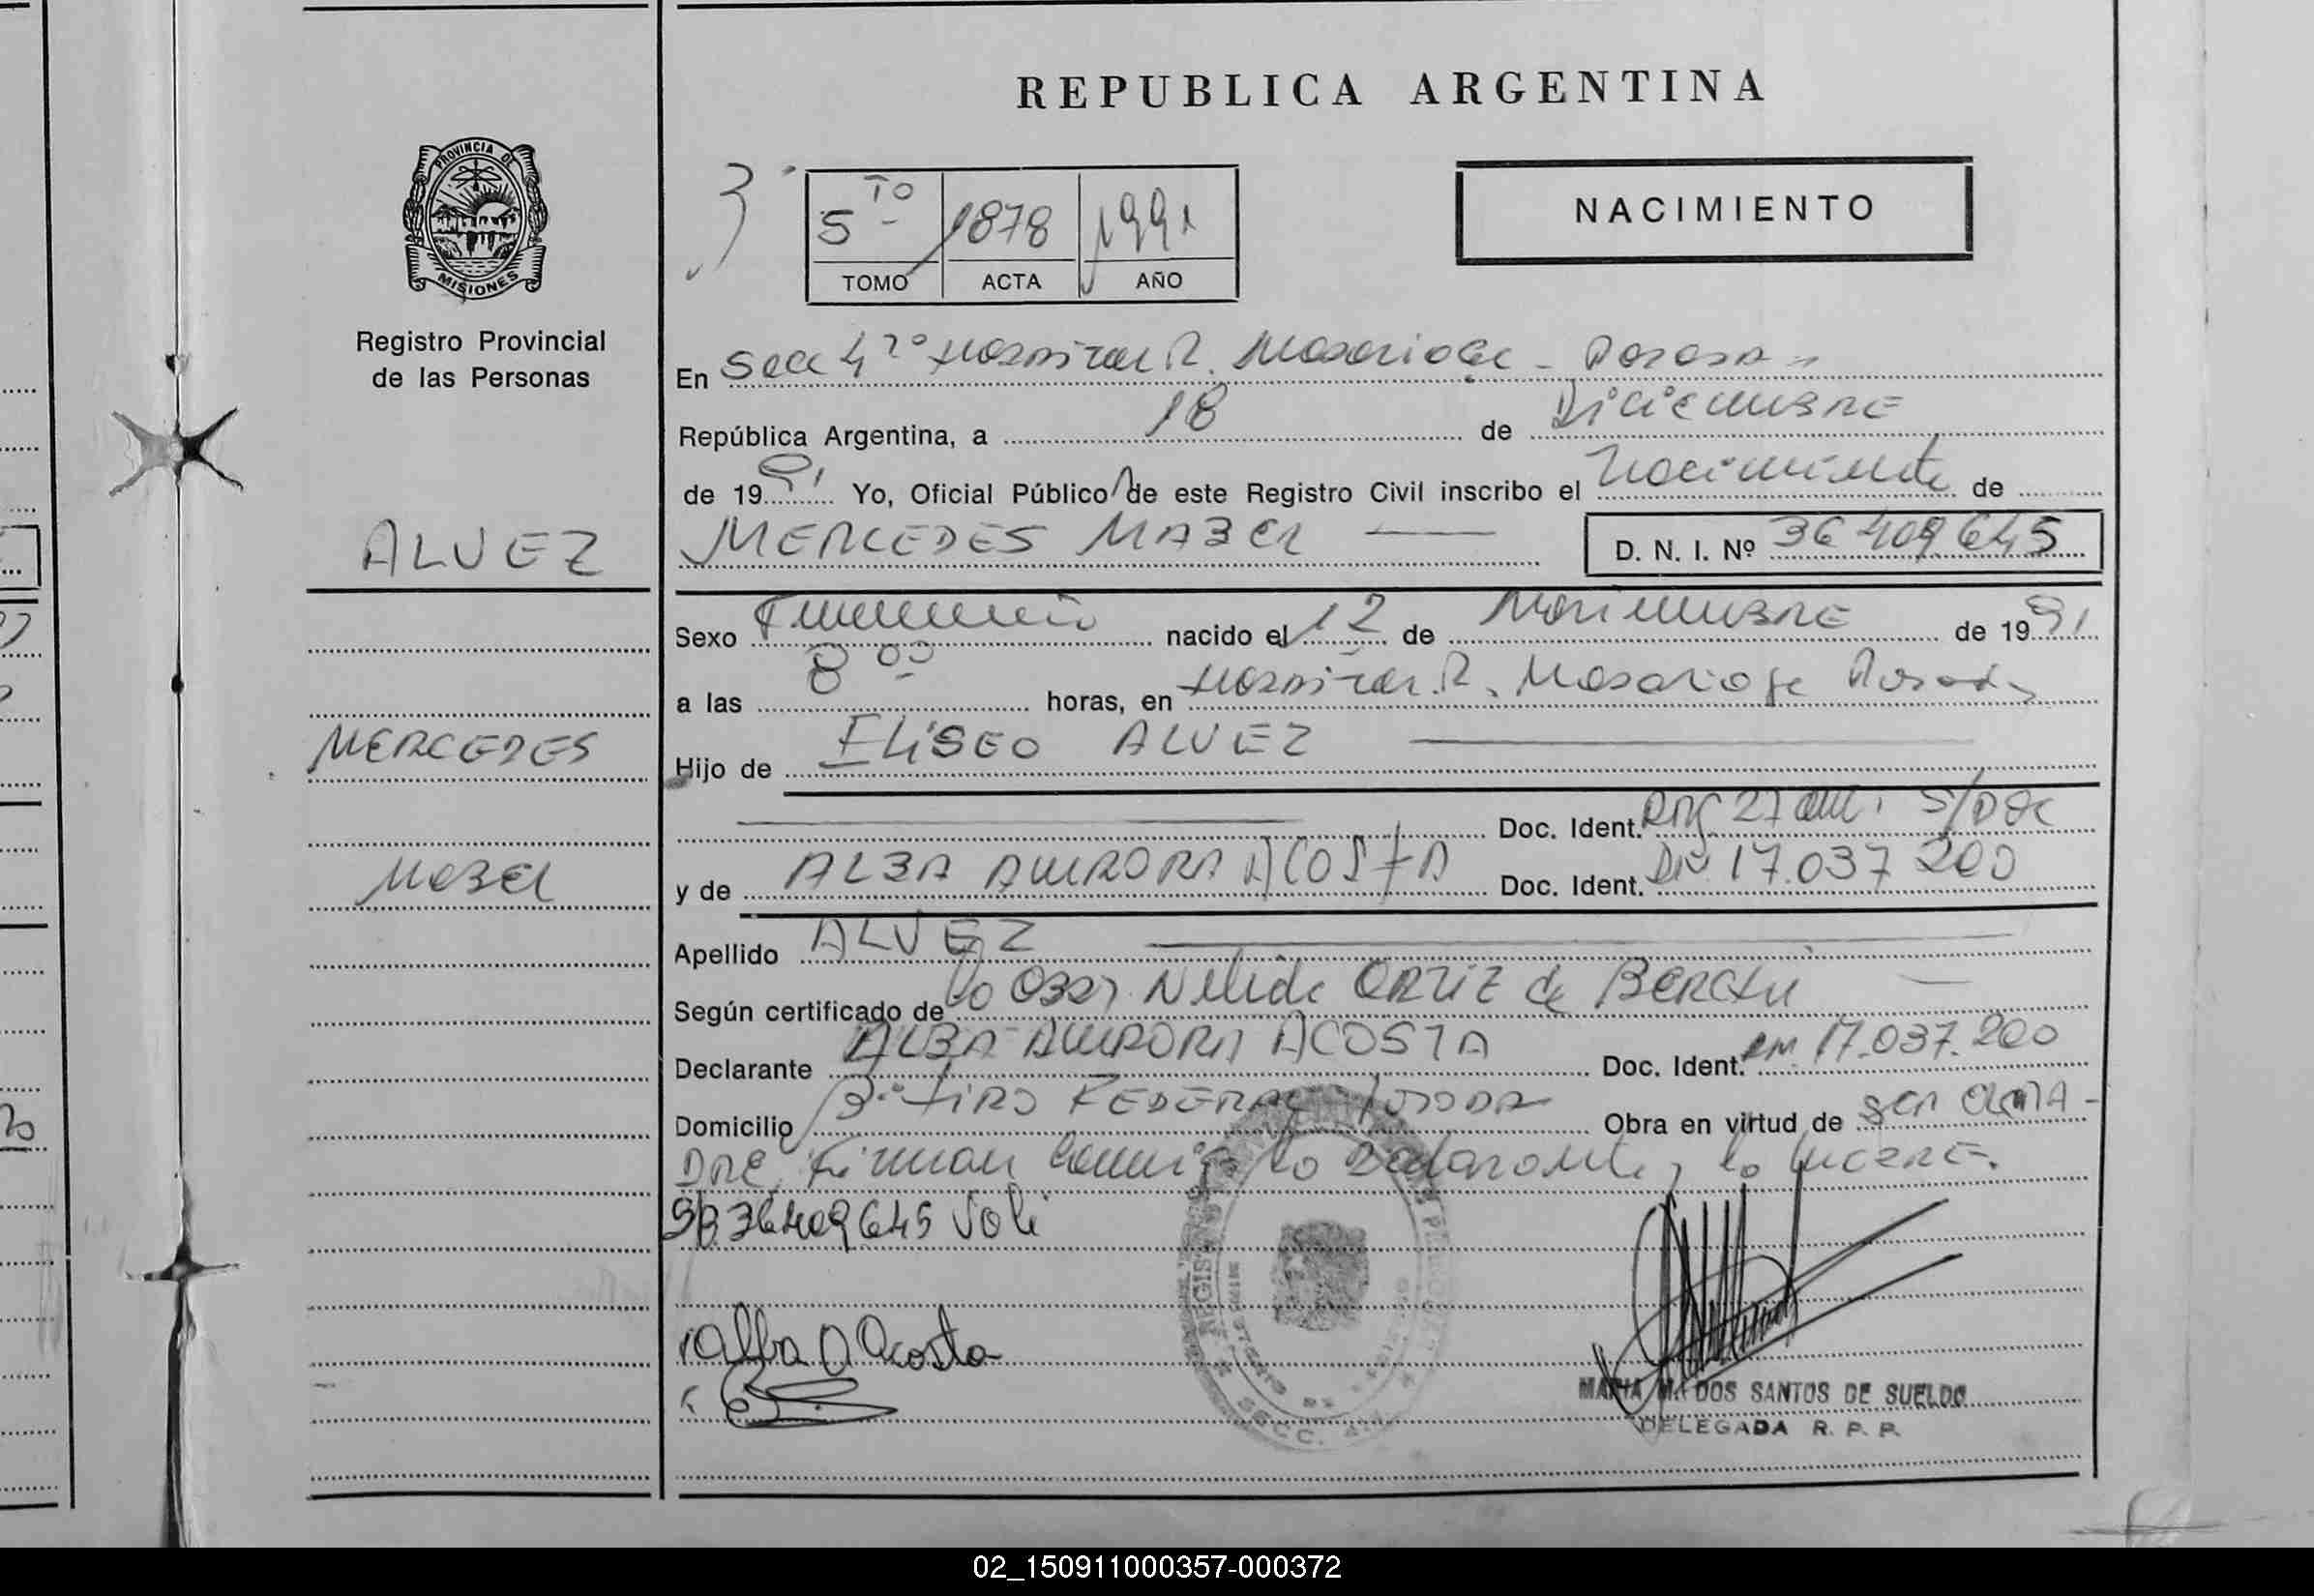 REPUBLICA ARGENTINA
PROVINCIA DE
MISIONES
Registro Provincial
de las Personas
3°
5 TO
1878
1991
TOMO
ACTA
AÑO
NACIMIENTO
En Secc 4ª Hospital R. Madariaga - Posadas
República Argentina, a 18 de Diciembre
de 1991 Yo, Oficial Público de este Registro Civil inscribo el Nacimiento de
ALVEZ
MERCEDES MABEL
D. N. I. Nº 36 409 645
Sexo Femenino nacido el 12 de Noviembre de 1991
a las 8 00 horas, en Hospital R. Madariaga Posadas
MERCEDES
Hijo de ELISEO ALVEZ
Doc. Ident. Arg. 27 años S/Doc
MABEL
y de ALBA AURORA ACOSTA Doc. Ident. DNI 17.037 200
Apellido ALVEZ
Según certificado de la Obst. Nelida ORTIZ de
Declarante ALBA AURORA ACOSTA Doc. Ident. DNI 17.037.200
Domicilio Bº TIRO FEDERAL Posadas Obra en virtud de ser MA-
DRE, Firman conmigo la Declarante,
36409645 Vale
Alba A Acosta
MARIA M. DOS SANTOS DE SUELDO
DELEGADA R. P. P.
SECC.
02_150911000357-000372